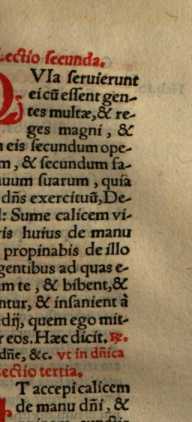 Lectio secunda.
QVIa seruierunt
ei cũ essent gen-
tes multæ, & re-
ges magni, &
eis secundum ope-
m, & secundum fa-
nuum suarum, quia
dñs exercituũ, De-
l: Sume calicem vi-
ris huius de manu
propinabis de illo
gentibus ad quas e-
m te, & bibent, &
ntur, & insanient à
dij, quem ego mit-
r eos. Hæc dicit. ℟.
dñe, &c. vt in dñica
Lectio tertia.
T accepi calicem
de manu dñi, &